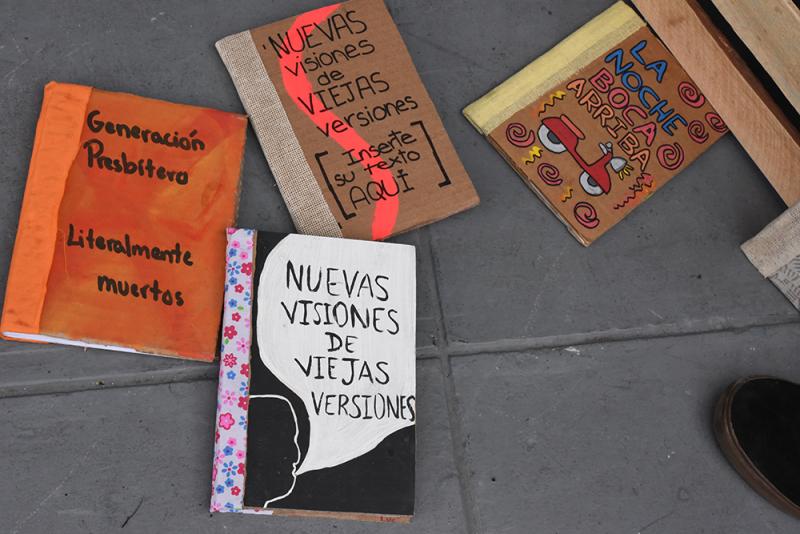 Generación
Presbítero
Literalmente
muertos
'NUEVAS
visiones
de
VIEJAS
versiones
[Inserte
su texto
AQUÍ]
LA
NOCHE
BOCA
ARRIBA
NUEVAS
VISIONES
DE
VIEJAS
VERSIONES